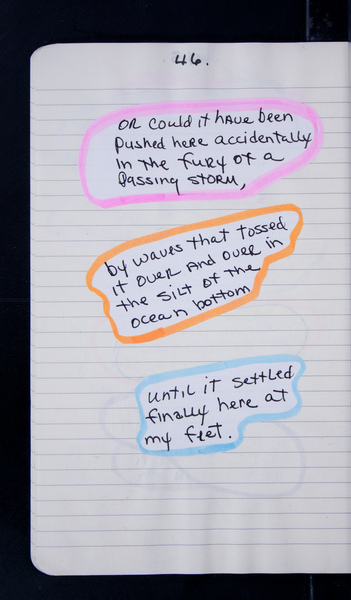 46.
OR could it HAVE been
pushed here accidentally
in the fury of a
passing storm,
by waves that tossed
it over and over in
the silt of the
ocean bottom
until it settled
finally here at
my feet.